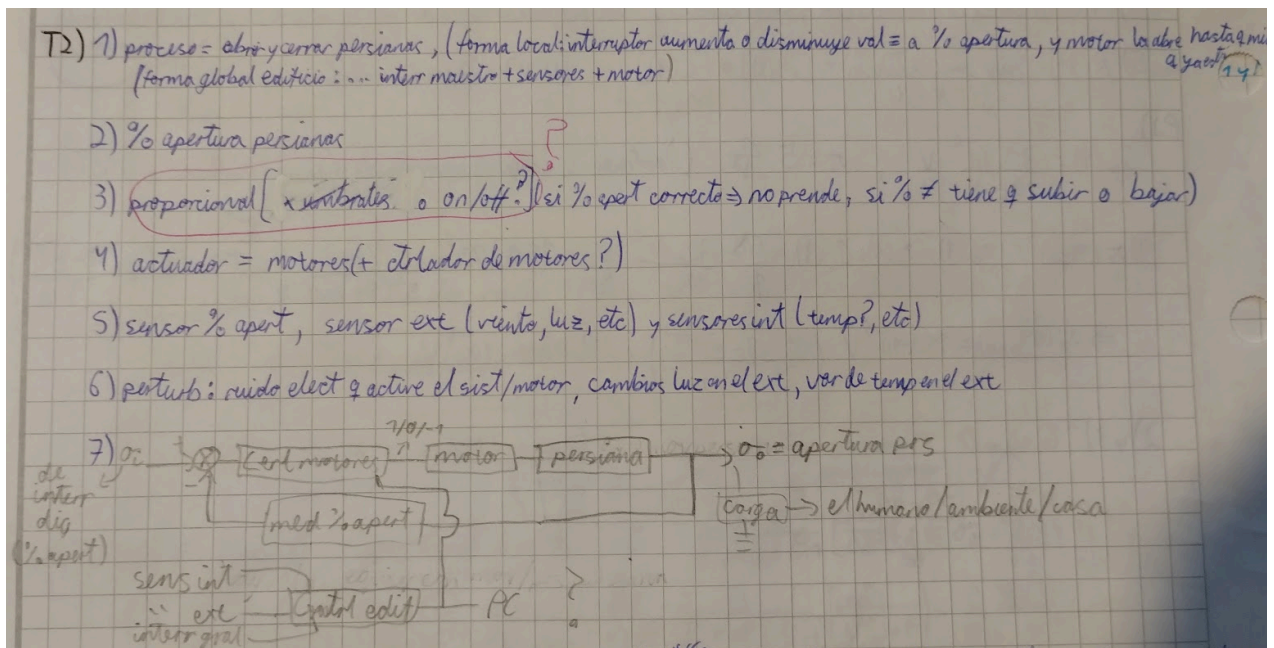 T2) 1) proceso = abrir y cerrar persianas, (forma local: interruptor aumenta o disminuye val ≡ a % apertura, y motor la abre hasta q
(forma global edificio: ... interr maestro + sensores + motor)
2) % apertura persianas
?
3) proporcional [ x o on/off?] (si % apert correcto ⇒ no prende, si % ≠ tiene q subir o bajar)
4) actuador = motores (+ ctrlador de motores?)
5) sensor % apert, sensor ext (viento, luz, etc) y sensores int (temp?, etc)
6) perturb: ruido elect q active el sist/motor, cambios luz en el ext, var de temp en el ext
1/0/-1
7) σi + - motores motor persiana σo = apertura prs
de
interr
dig
(% apert)
med % apert
carga → el humano/ambiente/casa
sens int
" ext
interr gral
edif PC ?